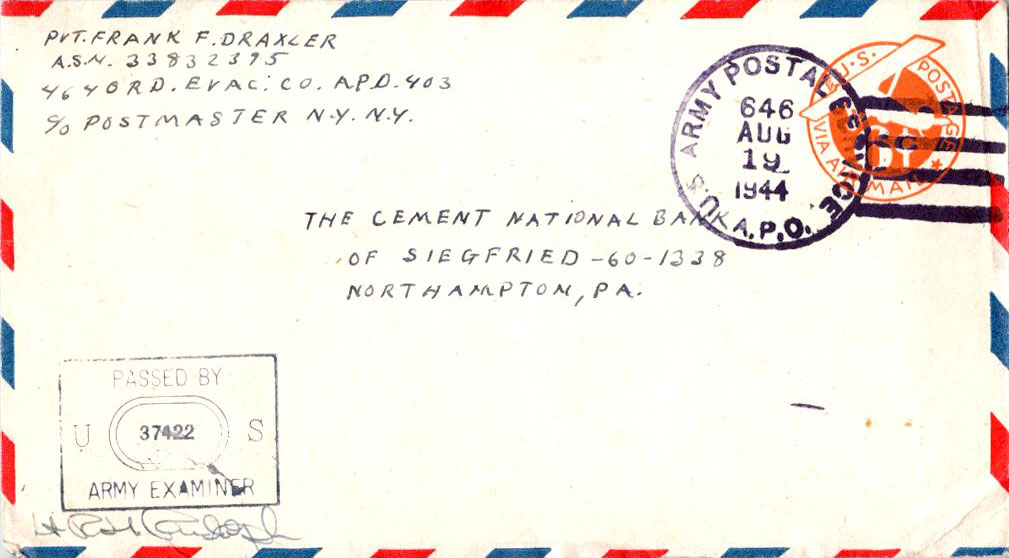 PVT. FRANK F. DRAXLER
A.S.N. 33832395
464 ORD. EVAC. CO. A.P.O. 403
C/O POSTMASTER N.Y. N.Y.
U.S. ARMY POSTAL SERVICE
646
AUG
19
1944
A.P.O.
U.S. POSTAGE
VIA AIR MAIL
THE CEMENT NATIONAL BANK
OF SIEGFRIED - 60 - 1338
NORTHAMPTON, PA.
PASSED BY
U 37422 S
ARMY EXAMINER